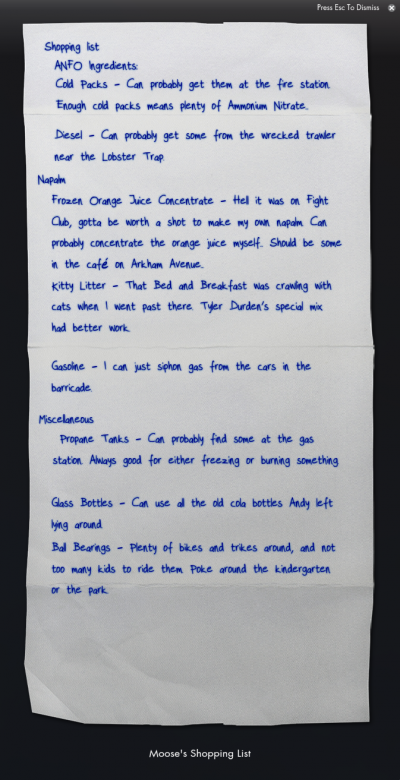 Press Esc To Dismiss
Shopping list
ANFO Ingredients:
Cold Packs - Can probably get them at the fire station.
Enough cold packs means plenty of Ammonium Nitrate...
Diesel - Can probably get some from the wrecked trawler
near the Lobster Trap.
Napalm
Frozen Orange Juice Concentrate - Hell it was on Fight
Club, gotta be worth a shot to make my own napalm. Can
probably concentrate the orange juice myself... Should be some
in the café on Arkham Avenue...
Kitty Litter - That Bed and Breakfast was crawling with
cats when I went past there. Tyler Durden's special mix
had better work.
Gasoline - I can just siphon gas from the cars in the
barricade.
Miscellaneous
Propane Tanks - Can probably find some at the gas
station. Always good for either freezing or burning something.
Glass Bottles - Can use all the old cola bottles Andy left
lying around
Ball Bearings - Plenty of bikes and trikes around, and not
too many kids to ride them. Poke around the kindergarten
or the park.
Moose's Shopping List